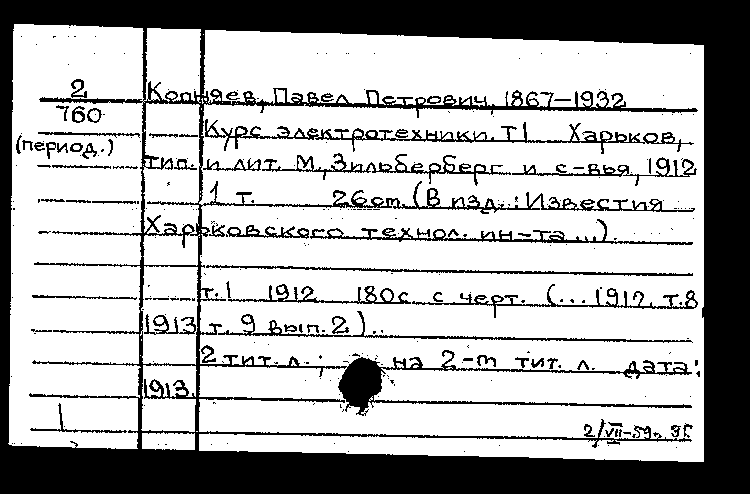 2 Копняев, Павел Петрович, 1867-1932
760
Курс электротехники. Т 1 Харьков,
(период.)
тип. и лит. М., Зильберберг и с-вья, 1912
1 т. 26 cm. (В изд.: Известия
Харьковского технол. ин-та...).
т. 1 1912 180 с. с черт. (...1912. т. 8,
1913 т. 9 вып. 2)..
2 тит. л.; на 2-m тит. л. дата:
1913.
2/VII-59г.